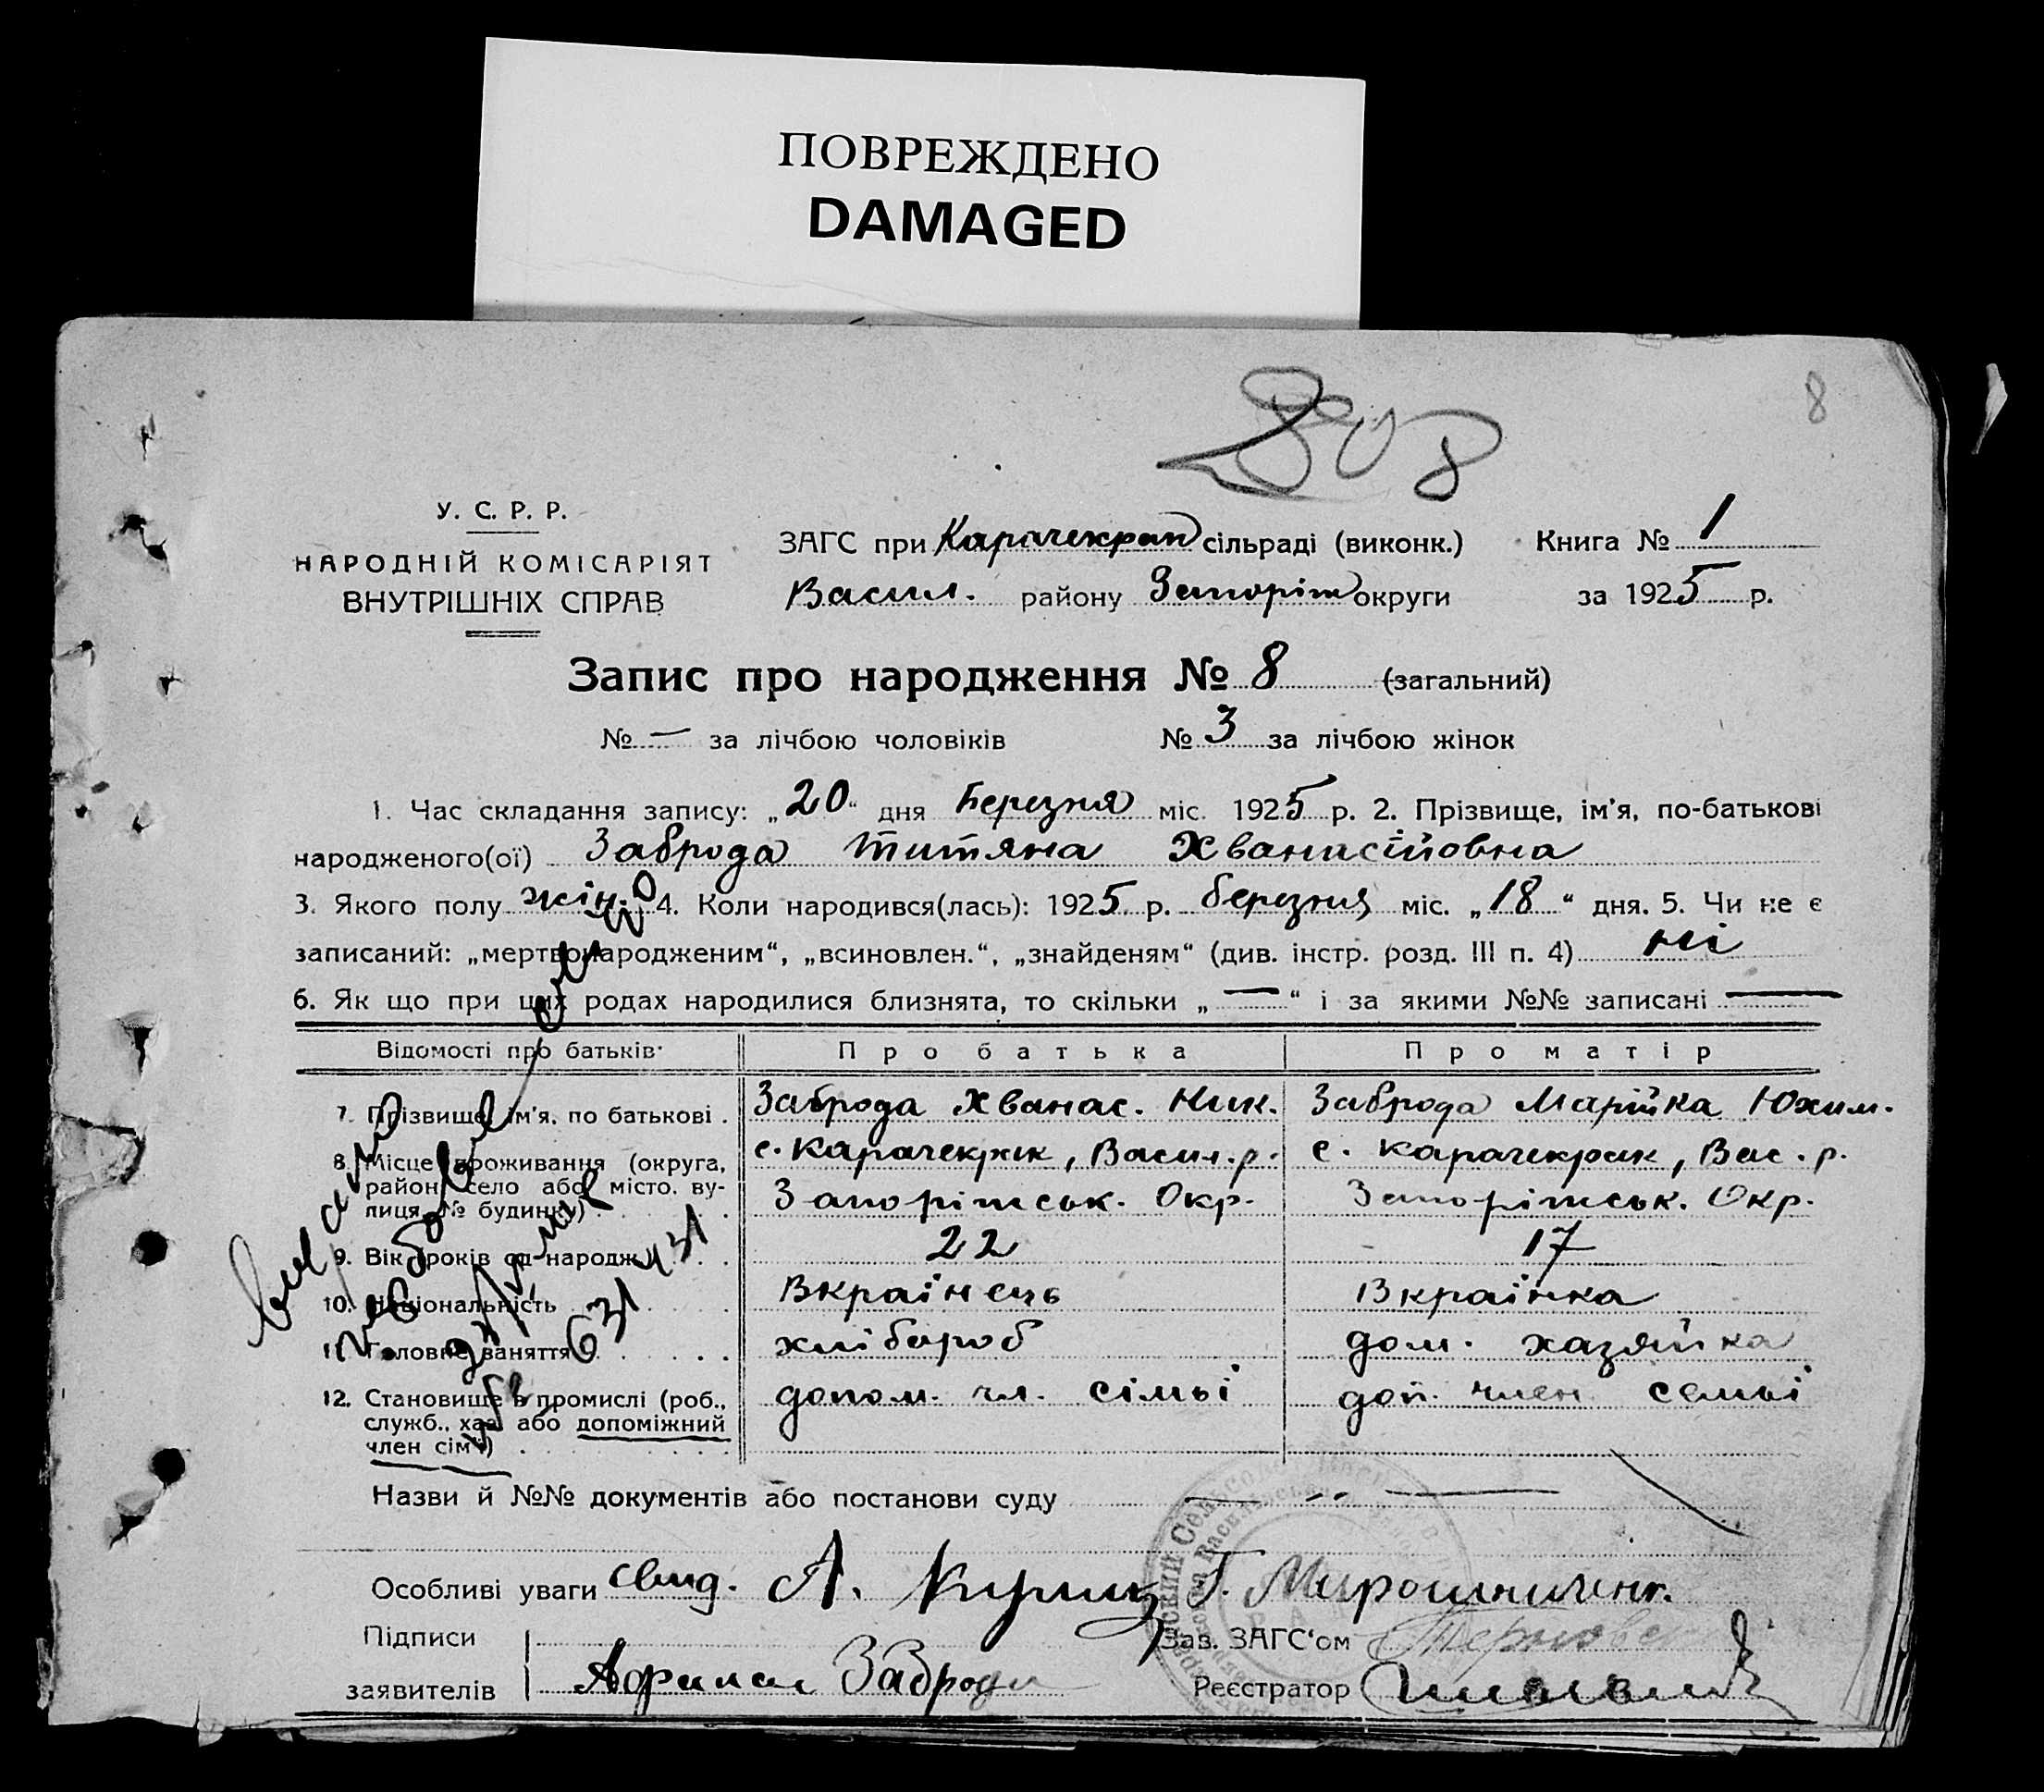 ПОВРЕЖДЕНО
DAMAGED
8
У. С. Р. Р.
НАРОДНІЙ КОМІСАРІЯТ
ВНУТРІШНІХ СПРАВ
ЗАГС при Карачекрак сільраді (виконк.) Книга № 1
Васил. району Запоріж округи за 1925 р.
Запис про народження № 8 (загальний)
№ — за лічбою чоловіків № 3 за лічбою жінок
1. Час складання запису: „20“ дня Березня міс. 1925 р. 2. Прізвище, ім'я, по-батькові
народженого(ої) Заброда Титяна Хванасійовна
3. Якого полу жін. 4. Коли народився(лась): 1925 р. березня міс. „18“ дня. 5. Чи не є
записаний: „мертвонародженим“, „всиновлен.“, „знайденям“ (див. інстр. розд. III п. 4) ні
6. Як що при цих родах народилися близнята, то скільки „—“ і за якими №№ записані —
Відомості про батьків Про батька Про матір
7. Прізвище, ім'я, по батькові . Заброда Хванас. Ник. Заброда Марійка Юхим.
8. Місце проживання (округа, район, село або місто, вулиця, № будинку) с. Карачекрик, Васил. р. с. Карачекрак, Вас. р.
Запоріжськ. Окр. Запоріжськ. Окр.
9. Вік (років од народж.) 22 17
10. Національність Вкраїнець Вкраїнка
11. Головне заняття хлібороб дом. хазяйка
12. Становище в промислі (роб., служб., хаз. або допоміжний член сім'ї) допом. чл. сімьі доп. член семьі
Назви й №№ документів або постанови суду — „ —
Особливі уваги свид. А. Куриц Г. Мирошниченк.
Підписи
заявителів Афанас Заброда
Зав. ЗАГС‘ом
Реєстратор